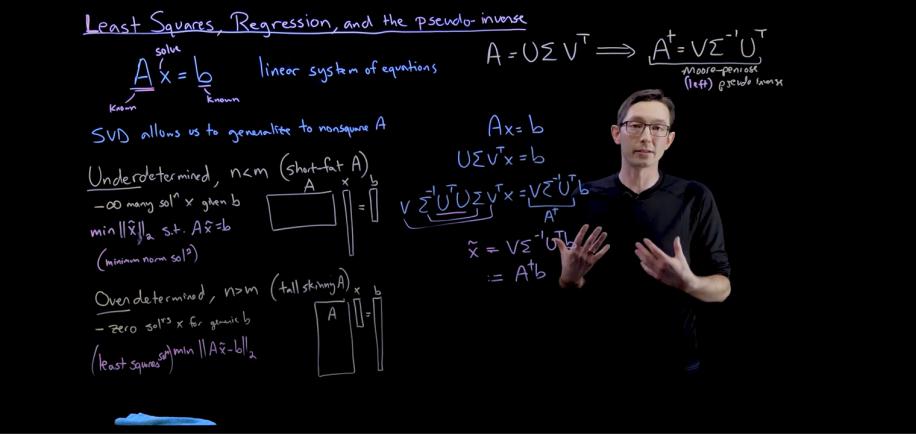 Least Squares, Regression, and the pseudo-inverse
solve
Ax = b
known
known
linear system of equations
SVD allows us to generalize to nonsquare A
Underdetermined, n<m (short-fat A)
A x = b
-∞ many solⁿ x given b
min ||x̃||₂ s.t. Ax̃=b
(minimum norm solⁿ)
Overdetermined, n>m (tall skinny A)
A x = b
- zero solⁿs x for generic b
(least squares solⁿ) min ||Ax̃-b||₂
A = UΣVᵀ ⟹ A† = VΣ⁻¹Uᵀ
Moore-penrose
(left) pseudo inverse
Ax = b
UΣVᵀx = b
VΣ⁻¹UᵀUΣVᵀx = VΣ⁻¹Uᵀb
A†
x̃ = VΣ⁻¹Uᵀb
:= A†b